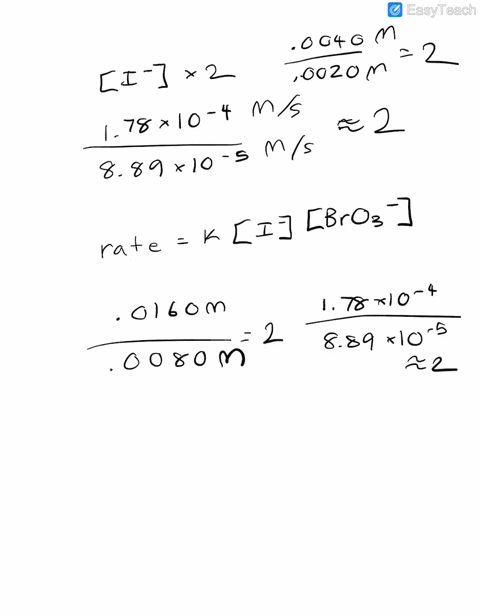 EasyTeach
[I⁻] × 2    .0040 M / .0020 M = 2
1.78 × 10⁻⁴ M/s / 8.89 × 10⁻⁵ M/s ≈ 2
rate = K [I⁻] [BrO₃⁻]
.0160 M / .0080 M = 2    1.78 × 10⁻⁴ / 8.89 × 10⁻⁵ ≈ 2